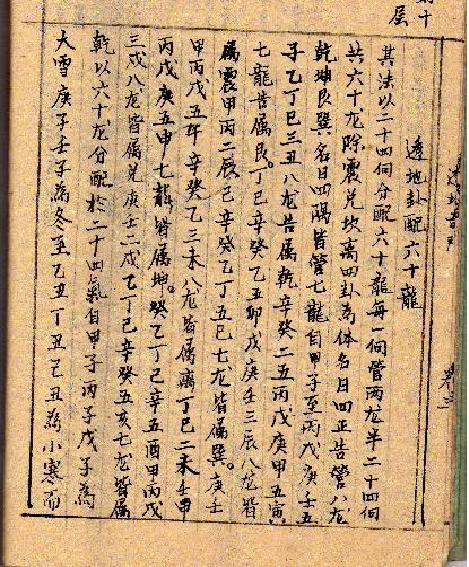 第十
层
卷三
透地卦配六十龍
其法以二十四個分配六十龍每一個管两龙半二十四個
共六十龙除震兑坎离四卦为体名曰四正告管八龙
乾坤艮巽名曰四隅皆管七龍自甲子至丙戊庚壬五
子乙丁巳三丑八龙告属乾辛癸二丑丙戊庚甲五寅
七龍告属艮。丁巳辛癸乙五卯戊庚壬三辰八龙皆
属震甲丙二辰己辛癸乙丁五巳七龙皆属巽。庚壬
甲丙戊五午辛癸乙三未八龙皆属离丁巳二未壬甲
丙戊庚五申七龍皆属坤。癸乙丁己辛五酉甲丙戊
三戌八龙皆属兑庚壬二戌乙丁己辛癸五亥七龙皆属
乾以六十龙分配於二十四氣自甲子丙子戊子為
大雪庚子壬子為冬至乙丑丁丑己丑為小寒而